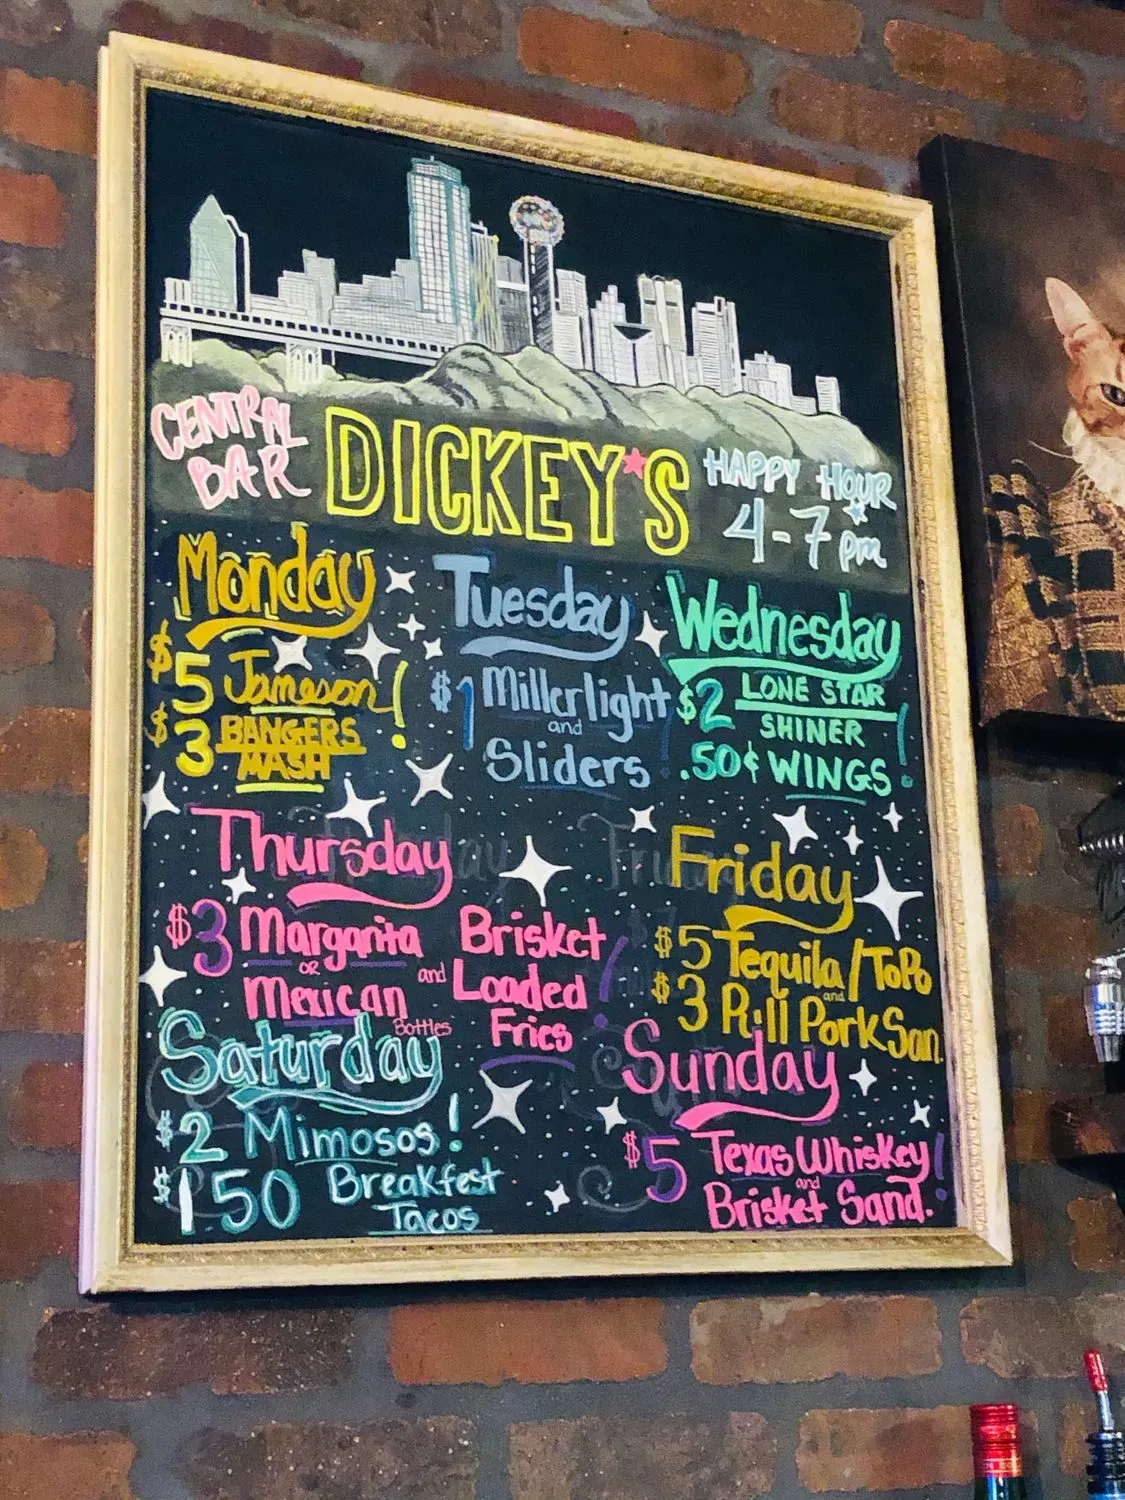 CENTRAL
BAR
DICKEY'S
HAPPY HOUR
4-7pm
Monday
$5 Jameson!
$3 BANGERS
MASH
Tuesday
$1 Millerlight
and
Sliders!
Wednesday
$2 LONE STAR
SHINER!
.50¢ WINGS
Thursday
$3 Margarita
or
Mexican
Bottles
and
Brisket
Loaded
Fries!
Friday
$5 Tequila/ToPo
and
$3 Pull Pork San.
Saturday
$2 Mimosos!
$1 50 Breakfest
Tacos
Sunday
$5 Texas Whiskey!
and
Brisket Sand.